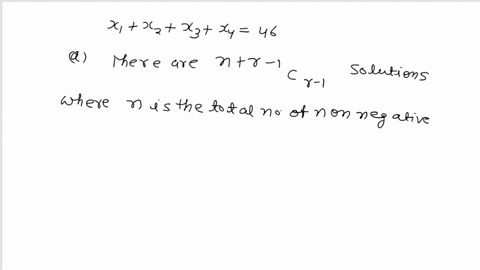 x₁ + x₂ + x₃ + x₄ = 46
(a) There are n+r-1 C r-1 solutions
where n is the total no of non negative